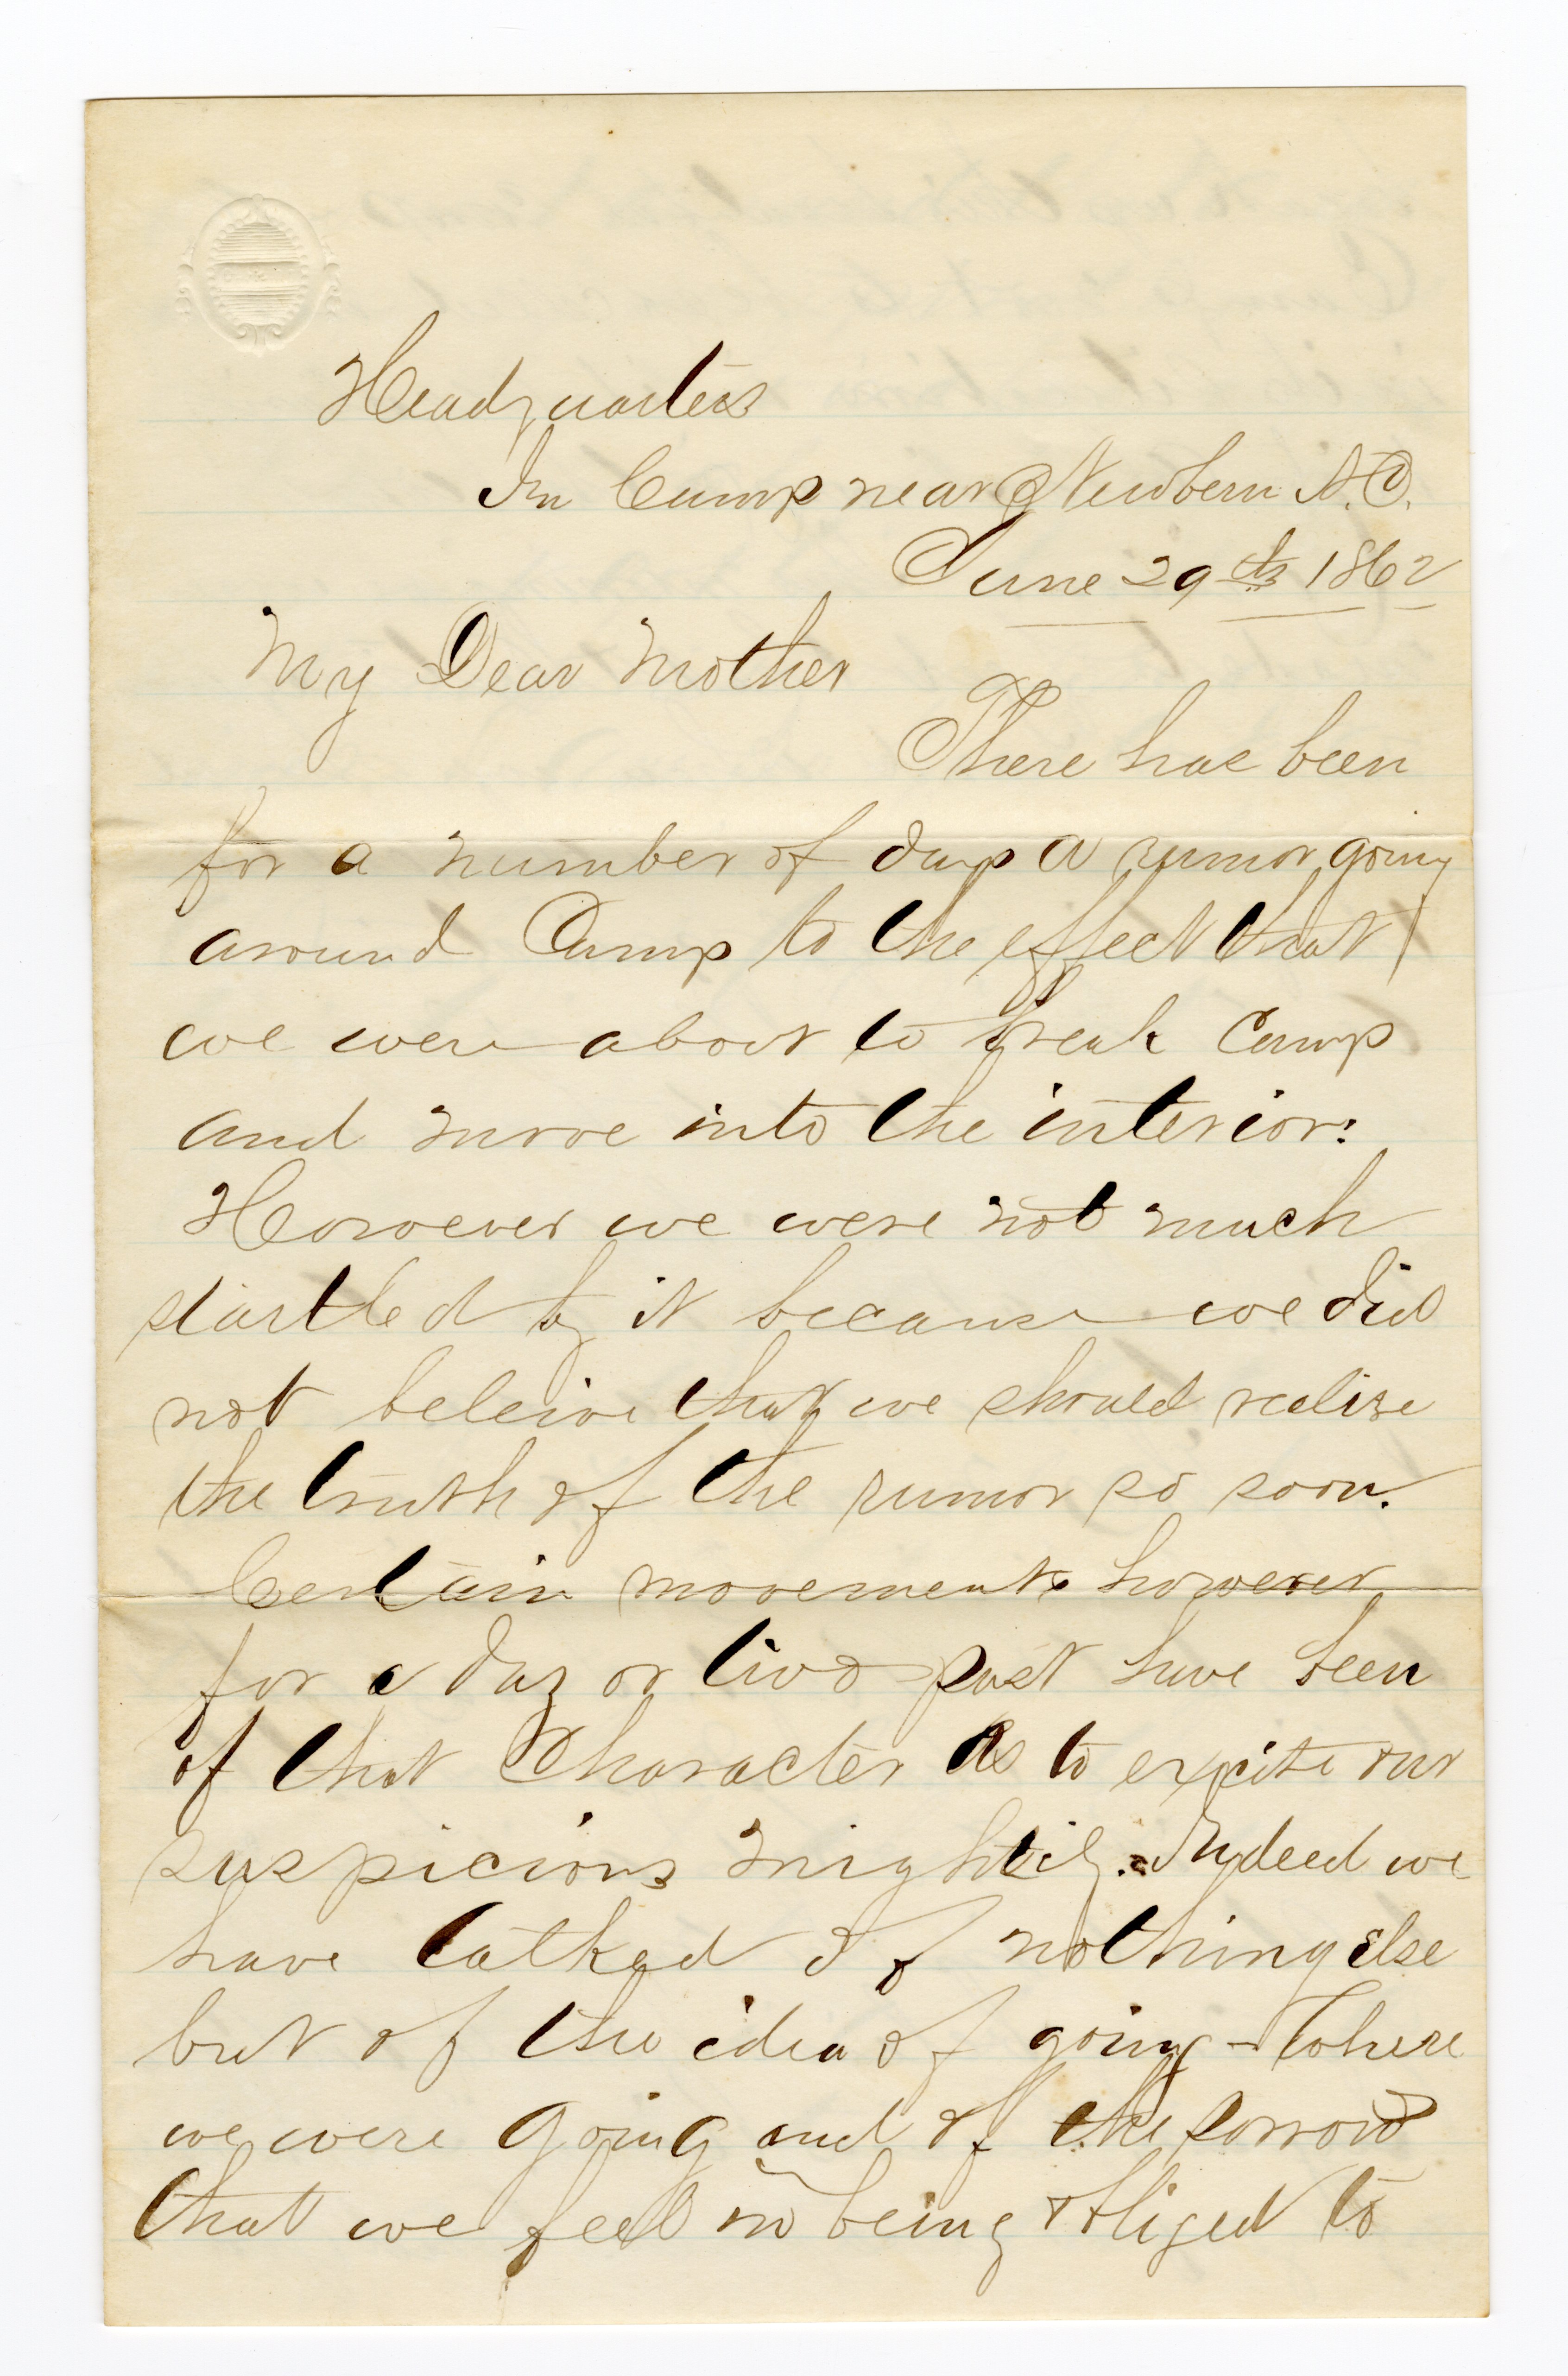 Headquarters
In Camp near Newbern N.C.
June 29th 1862
My Dear Mother
There has been
for a number of days a rumor going
around Camp to the effect that
we were about to break Camp
and move into the interior:
However we were not much
startled by it because we did
not beleive that we should realise
the truth of the rumor so soon.
Certain movements however
for a day or two past have been
of that Character as to excite our
suspicions mightily. Indeed we
have talked of nothing else
but of the idea of going - Where
we were going and of the sorrow
that we feel in being obliged to